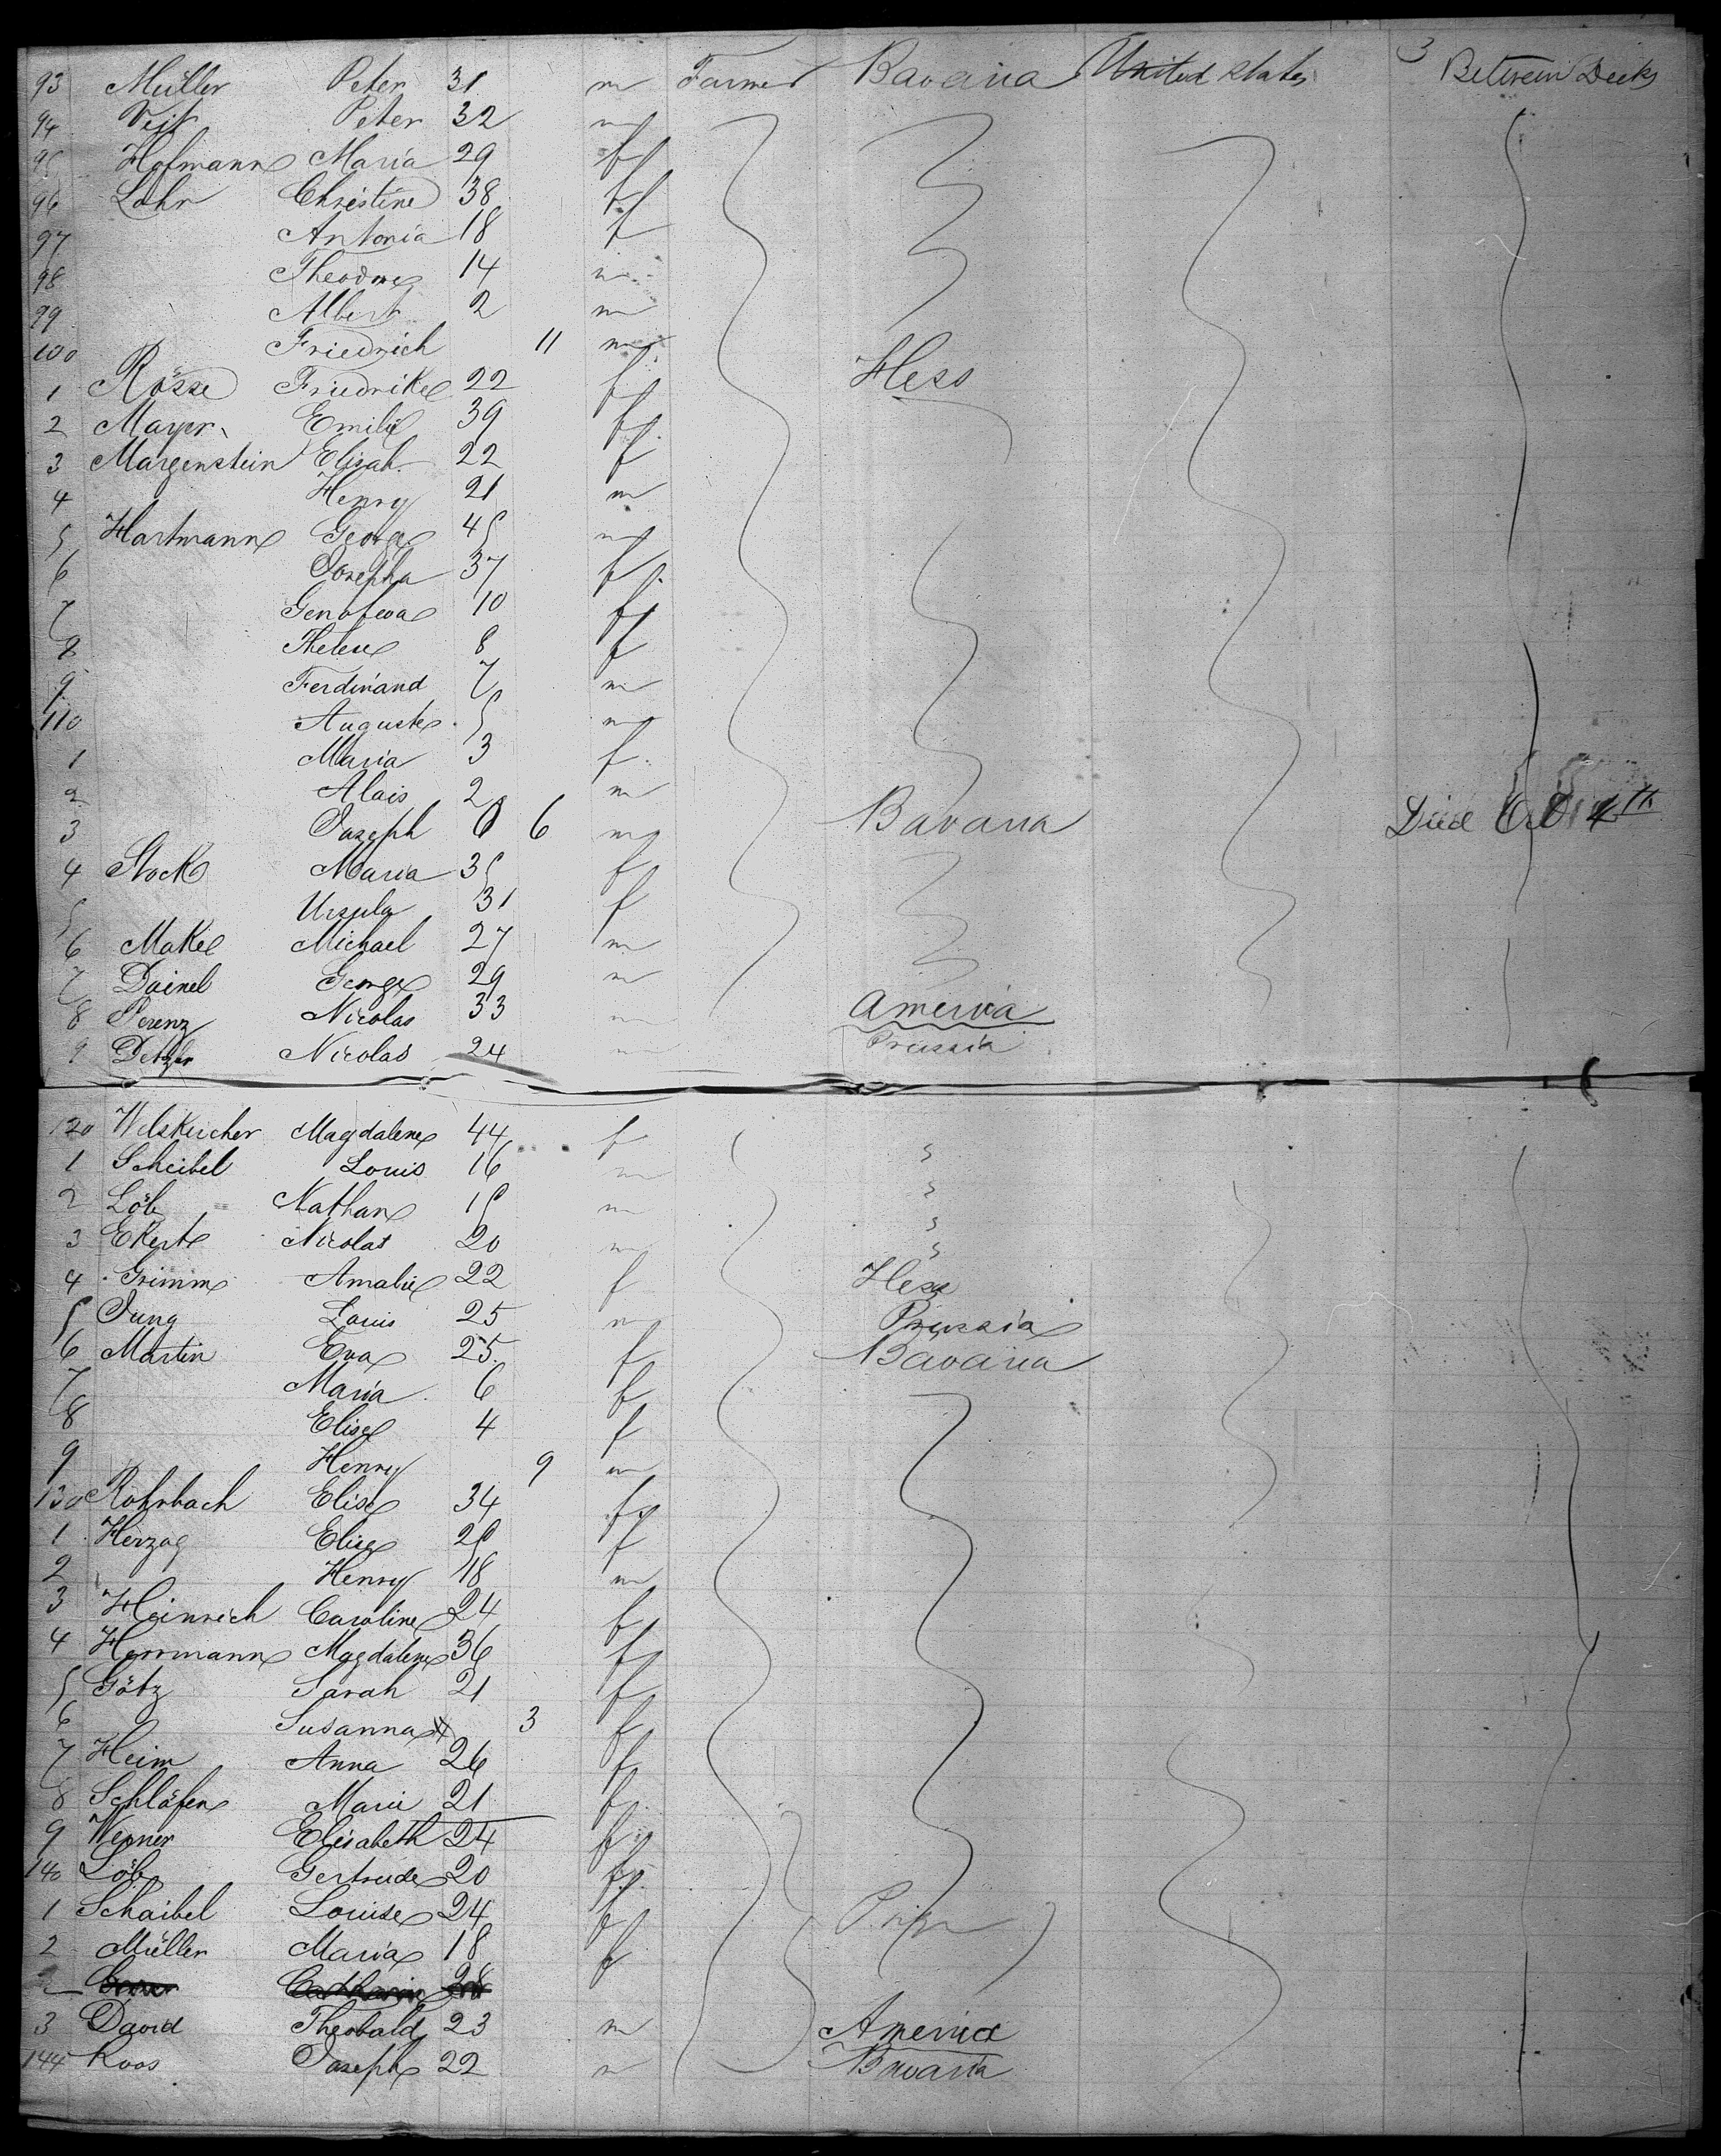 3
93 Müller Peter 31 m Farmer Bavaria United States Between Decks
94 Veit Peter 32 m
95 Hofmann Maria 29 f
96 Lohr Christine 38 f
97 Antonia 18 f
98 Theodore 14 m
99 Albert 2 m
100 Friedrich 11 m
1 Rösse Friedrike 22 f Hess
2 Mayer Emilie 39 f
3 Margenstein Elisab. 22 f
4 Henry 21 m
5 Hartmann George 45 m
6 Josepha 37 f
7 Genofeva 10 f
8 8 f
9 Ferdinand 7 m
110 Auguste 5 m
1 Maria 3 f
2 Alois 2 m
3 Joseph 6 m Bavaria Died Oct 4th
4 Stock Maria 35 f
5 Ursula 31 f
6 Makel Michael 27 m
7 Dainel George 29 m
8 Serenz Nicolas 33 m America
9 Nicolas 24 m Prussia
120 Magdalene 44 f
1 Scheibel Louis 16 m "
2 Löb Nathan 15 m "
3 Ekert Nicolas 20 m "
4 Grimm Amalie 22 f Hess
5 Jung Louis 25 m Prussia
6 Martin Eva 25 f Bavaria
7 Maria 6 f
8 Elise 4 f
9 Henry 9 m
130 Rohrbach Elise 34 f
1 Herzog Elise 25 f
2 Henry 18 m
3 Heinrich Caroline 24 f
4 Herrmann Magdalene 36 f
5 Götz Sarah 21 f
6 Susanna 3 f
7 Heim Anna 26 f
8 Schläfen Marie 21 f
9 Werner Elisabeth 24 f
140 Löb Gertrude 20 f
1 Schaibel Louise 24 f
2 Müller Maria 18 f
Catharine 28
3 David Theobald 23 m America
144 Koos Joseph 22 m Bavaria